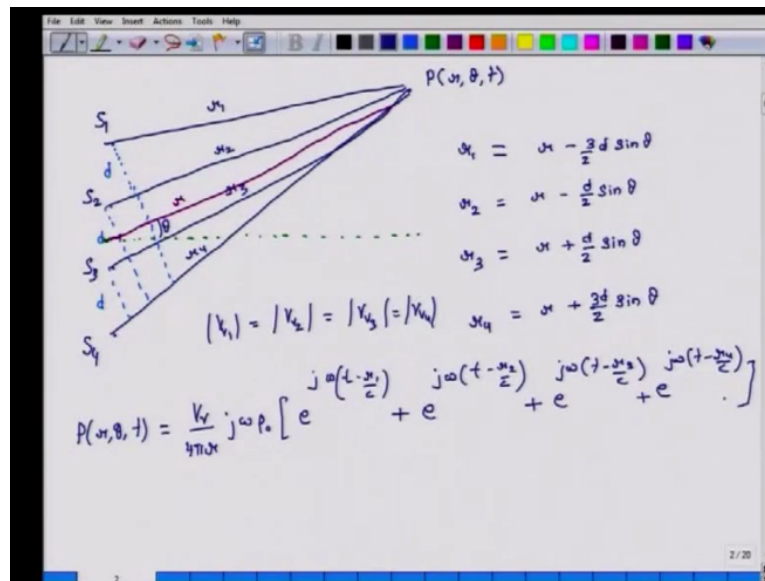 File Edit View Insert Actions Tools Help
B I
P(r, θ, t)
S₁
r₁
d
S₂
r₂
r
r₃
d
θ
S₃
r₄
d
S₄
r₁ = r - 3/2 d sin θ
r₂ = r - d/2 sin θ
r₃ = r + d/2 sin θ
r₄ = r + 3d/2 sin θ
|V_v₁| = |V_v₂| = |V_v₃| = |V_v₄|
P(r, θ, t) = V_v/4πr jωρ₀ [ e^{jω(t - r₁/c)} + e^{jω(t - r₂/c)} + e^{jω(t - r₃/c)} + e^{jω(t - r₄/c)} ]
2 / 20
2